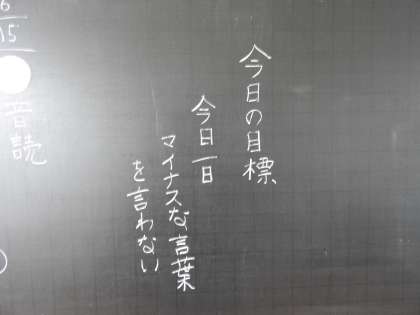 今日の目標
今日一日
マイナスな言葉
を言わない
音読
6
15